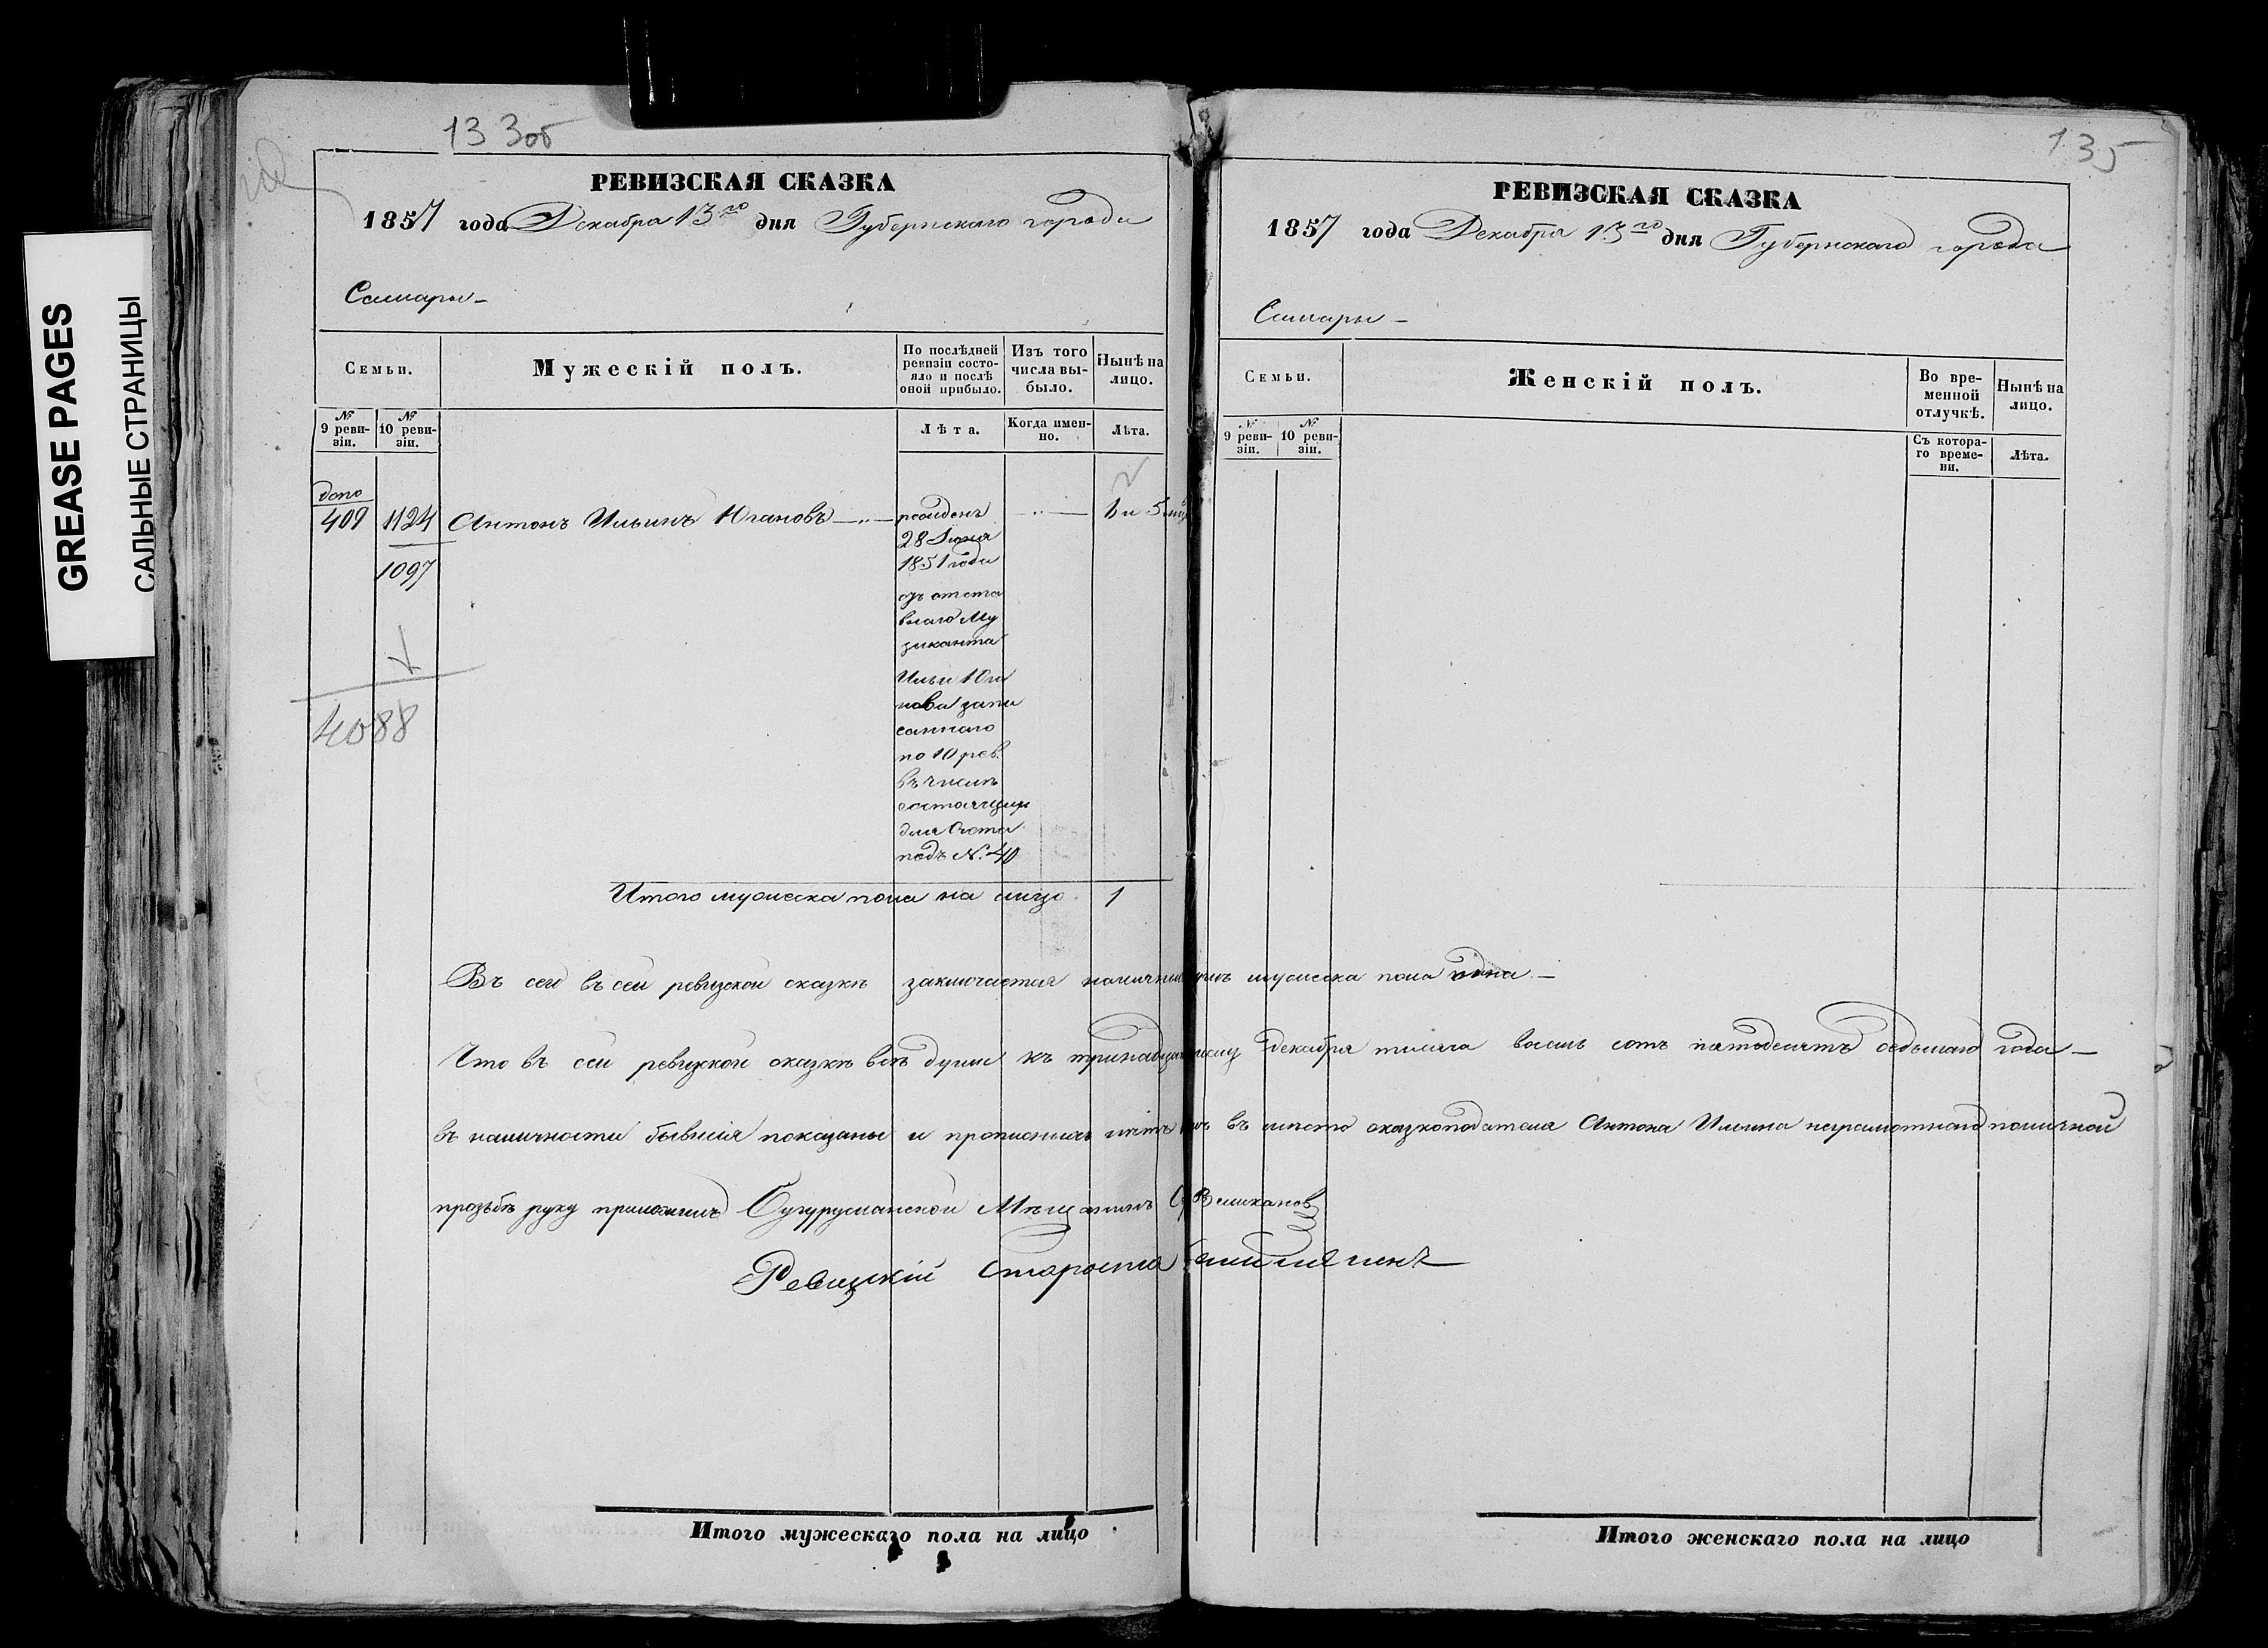 GREASE PAGES
САЛЬНЫЕ СТРАНИЦЫ
133об
РЕВИЗСКАЯ СКАЗКА
1857 года Декабря 13го дня Губернскаго города
Самары
Семьи.
Мужескій полъ.
По послѣдней ревизіи состояло и послѣ оной прибыло.
Изъ того числа выбыло.
Нынѣ на лицо.
№ 9 ревизіи.
№ 10 ревизіи.
Лѣта.
Когда именно.
Лѣта.
допо
409 1124 Антонъ Ильинъ Югановъ рожденъ
28 Іюня
1097 1851 года
отста
внаго Му
зиканта
Ильи Юга
нова запи
саннаго
по 10 рев.
въ числѣ
состоящихъ
для Счета
подъ № 40
4088
Итого мужеска пола на лицо 1
135
РЕВИЗСКАЯ СКАЗКА
1857 года Декабря 13го дня Губернскаго города
Самары
Семьи.
Женскій полъ.
Во временной отлучкѣ.
Нынѣ на лицо.
№ 9 ревизіи.
№ 10 ревизіи.
Съ котораго времени.
Лѣта.
Въ сей въ сей ревизской сказкѣ заключается мужеска пола одна
Что въ сей ревизской сказкѣ всѣ души къ тринадцатому декабря тысяча восемь сотъ пятьдесятъ седьмаго года
въ наличности бывшія показаны и прописныхъ нѣтъ въ мѣсто сказкоподателя Антона Ильина неграмотнаго по личной
прозьбѣ руку приложилъ Бугурусланской Мѣщанинъ Великановъ
Ревизскій Староста
Итого мужескаго пола на лицо
Итого женскаго пола на лицо